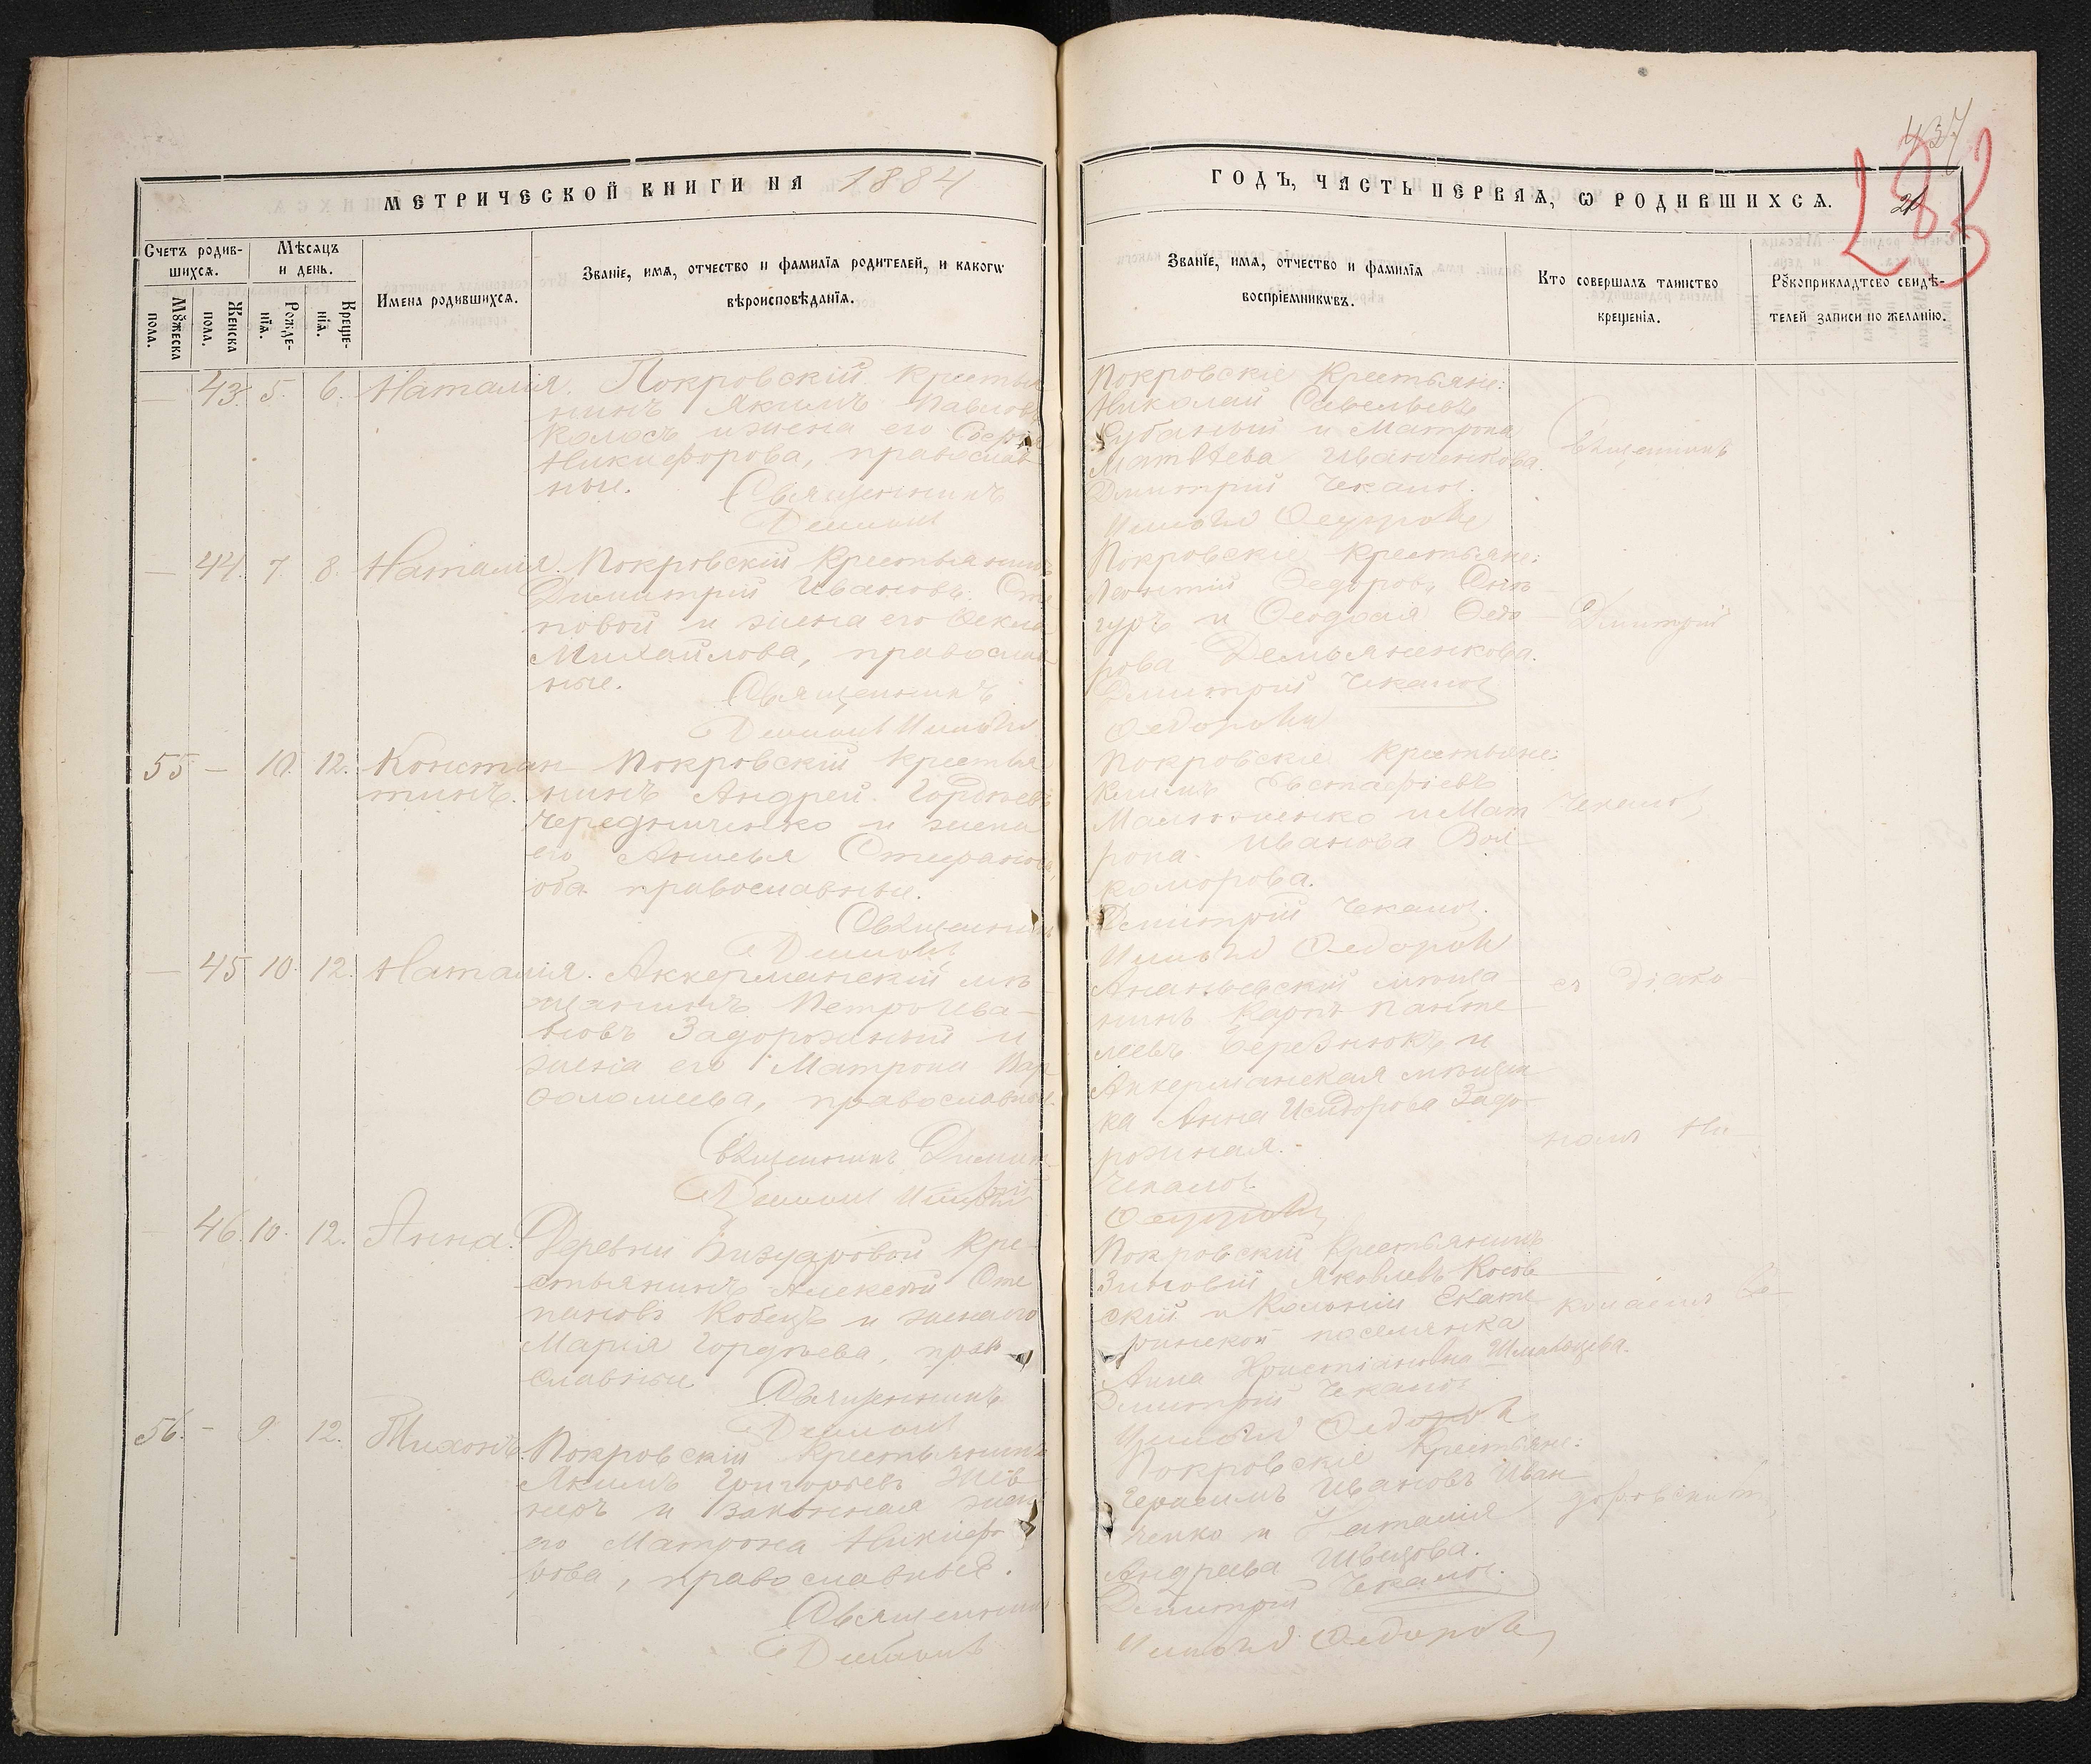 437
283
21
МЕТРИЧЕСКОЙ КНИГИ НА 1884
ГОДЪ, ЧАСТЬ ПЕРВАѦ, Ѡ РОДИВШИХСѦ.
Счетъ родив-
шихсѧ.
Мꙋжеска
пола.
Женска
пола.
Мѣсѧцъ
и день.
Рожде-
нїѧ.
Креще-
нїѧ.
Имена родившихсѧ.
Званїе, имѧ, отчество и фамилїѧ родителей, и какогѡ
вѣроисповѣданїѧ.
Званїе, имѧ, отчество и фамилїѧ
воспрїемникѡвъ.
Кто совершалъ таинство
крещенїѧ.
Рꙋкоприкладтсво свидѣ-
телей записи по желанїю.
— 43. 5. 6. Наталія. Покровскій крестья
нинъ Якимъ Павловъ
Колосъ и жена его Софія
Никифорова, православ
ные.
Священникъ
Діаконъ
Покровскіе крестьяне:
Николай Савельевъ
Губаный и Матрона
Матвѣева Иваненкова.
Димитрій Чекановъ.
Федоровъ
Священникъ
— 44. 7. 8. Наталія. Покровскій крестьянинъ
Димитрій Ивановъ Сте
повой и жена его Ѳекла
Михайлова, православ
ные.
Священникъ
Діаконъ
Покровскіе крестьяне:
Леонтій Федоровъ
гуръ и Ѳеодосія Ѳедо
рова Демьяненкова.
Димитрій Чекановъ
Федоровъ
Димитрій
55 — 10. 12. Констан
тинъ.
Покровскій крестья
нинъ Андрей Гордѣевъ
Чередниченко и жена
его Анисья Стефанова,
оба православные.
Священникъ
Діаконъ
Покровскіе крестьяне:
Климъ Евстафіевъ
и Мат
рона Иванова
коморова.
Димитрій Чекановъ.
Федоровъ
Чекановъ
— 45 10. 12. Наталія. Аккерманскій мѣ
щанинъ Петръ Ива-
новъ Задорожный и
жена его Матрона Вар
ѳоломеева, православные.
Священникъ Димит
рій
Діаконъ
Ананьевскій мѣща
нинъ Карпъ Панте
леевъ Березнюкъ и
Аккерманская мѣщан
ка Анна Исидорова Задо-
рожная.
Чекановъ.
Федоровъ
съ Діако-
номъ Ни-
— 46. 10. 12. Анна. Деревни Визуаровой кре
стьянинъ Алексѣй Сте
пановъ Кобецъ и жена его
Марія Гордѣева, право
славные
Священникъ
Діаконъ
Покровскій крестьянинъ
Зиновій Яковлевъ Косов
скій и колоніи Екате
ринской поселянка
Анна Христіановна
Димитрій Чекановъ
Федоровъ
колаемъ Ѳе-
56. — 9. 12. Тихонъ. Покровскій крестьянинъ
Якимъ Григорьевъ Жев
неръ и законная жена
его Матрона Никифо
рова, православные.
Священникъ
Діаконъ
Покровскіе крестьяне:
Герасимъ Ивановъ Иван
ченко и Наталія
Андреева Швецова.
Димитрій Чекановъ.
Федоровъ
доровскимъ